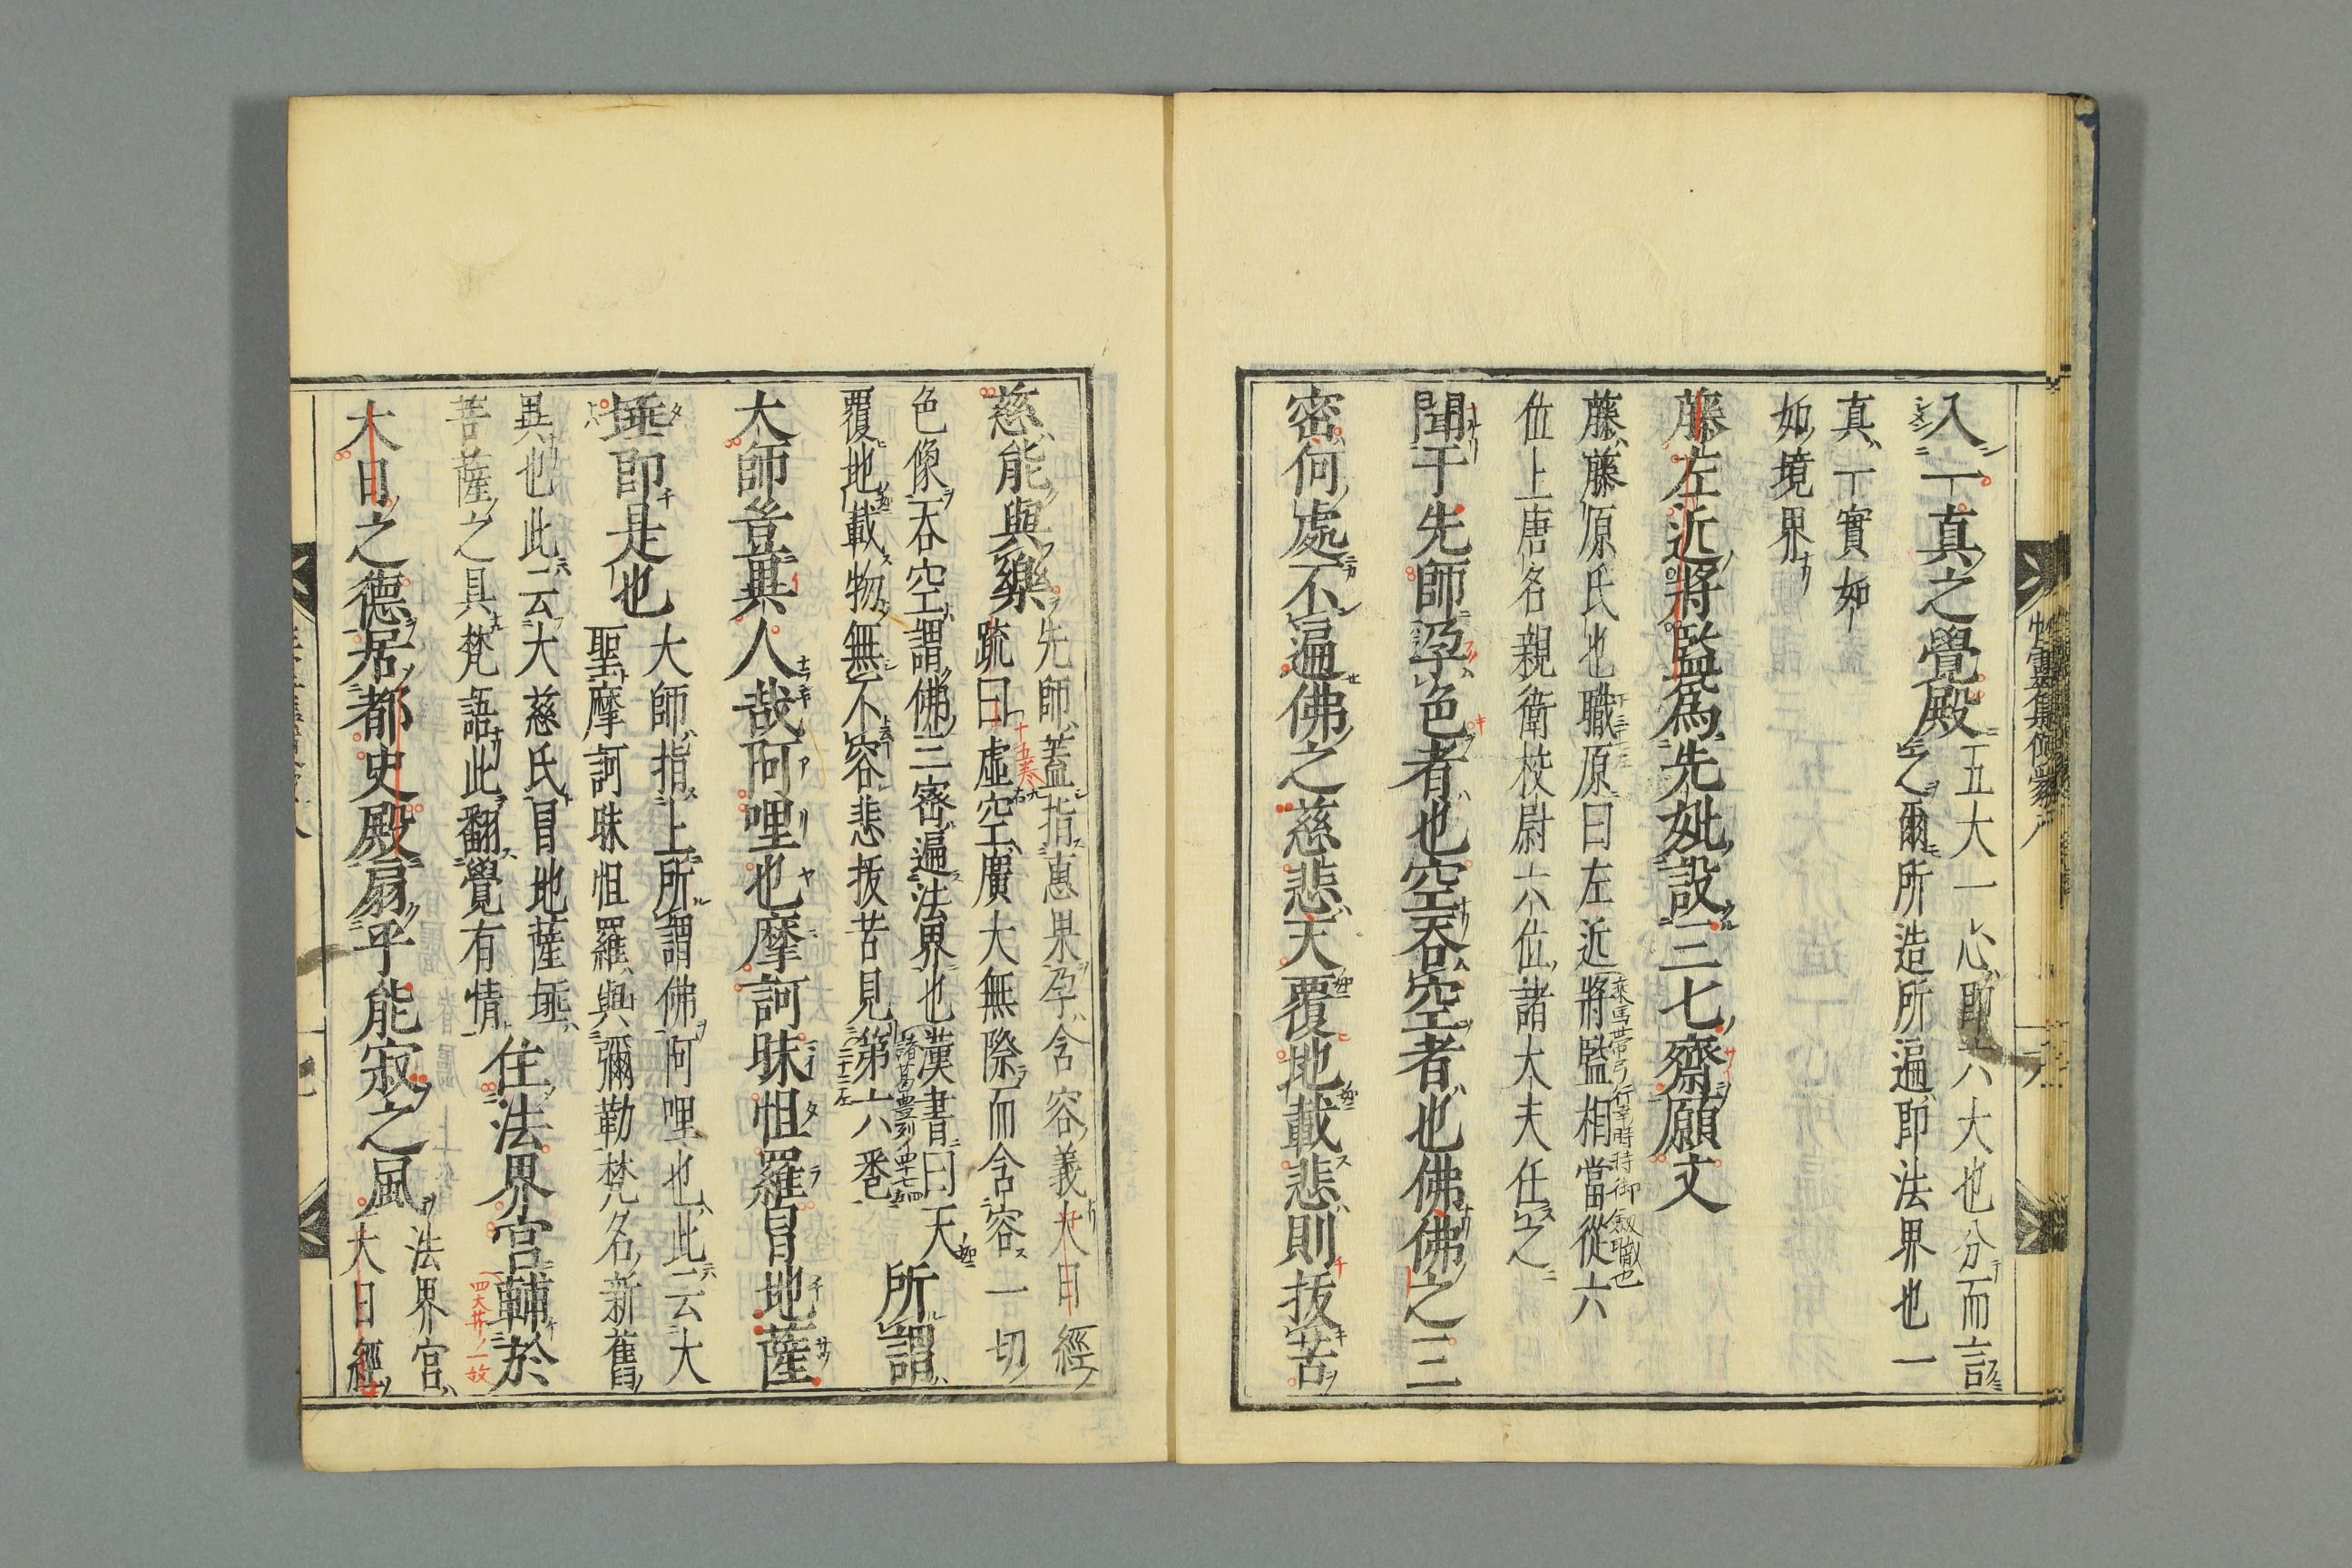 入一真之覺殿
五大一心即六大也分而言
之爾所造所遍即法界也一
真一實如
如境界
藤左近將監爲先妣設三七齋願文
藤藤原氏也職原曰左近將監相當從六
乘馬帶弓行幸時時御劔職也
位上唐名親衛校尉六位諸大夫任之
聞于先師孕色者也空吞空者也佛佛之三
密何處不遍佛之慈悲天覆地載悲則拔苦
慈能與樂
先師蓋指惠果孕含容義大日經
疏曰虛空廣大無際而含容一切
十五卷九右
色像吞空謂佛三密遍法界也漢書曰天
覆地載物無不容悲拔苦見第六卷
二十二左
所謂
大師豈異人哉阿哩也摩訶昧怛羅冒地薩
埵即是也
大師指上所謂佛阿哩也此云大
聖摩訶昧怛羅與彌勒梵名新舊
異也此云大慈氏冒地薩埵
菩薩之具梵語此翻覺有情
住法界宮輔於
四大井ノ一故
大日之德居都史殿扇乎能寂之風
法界宮
大日經